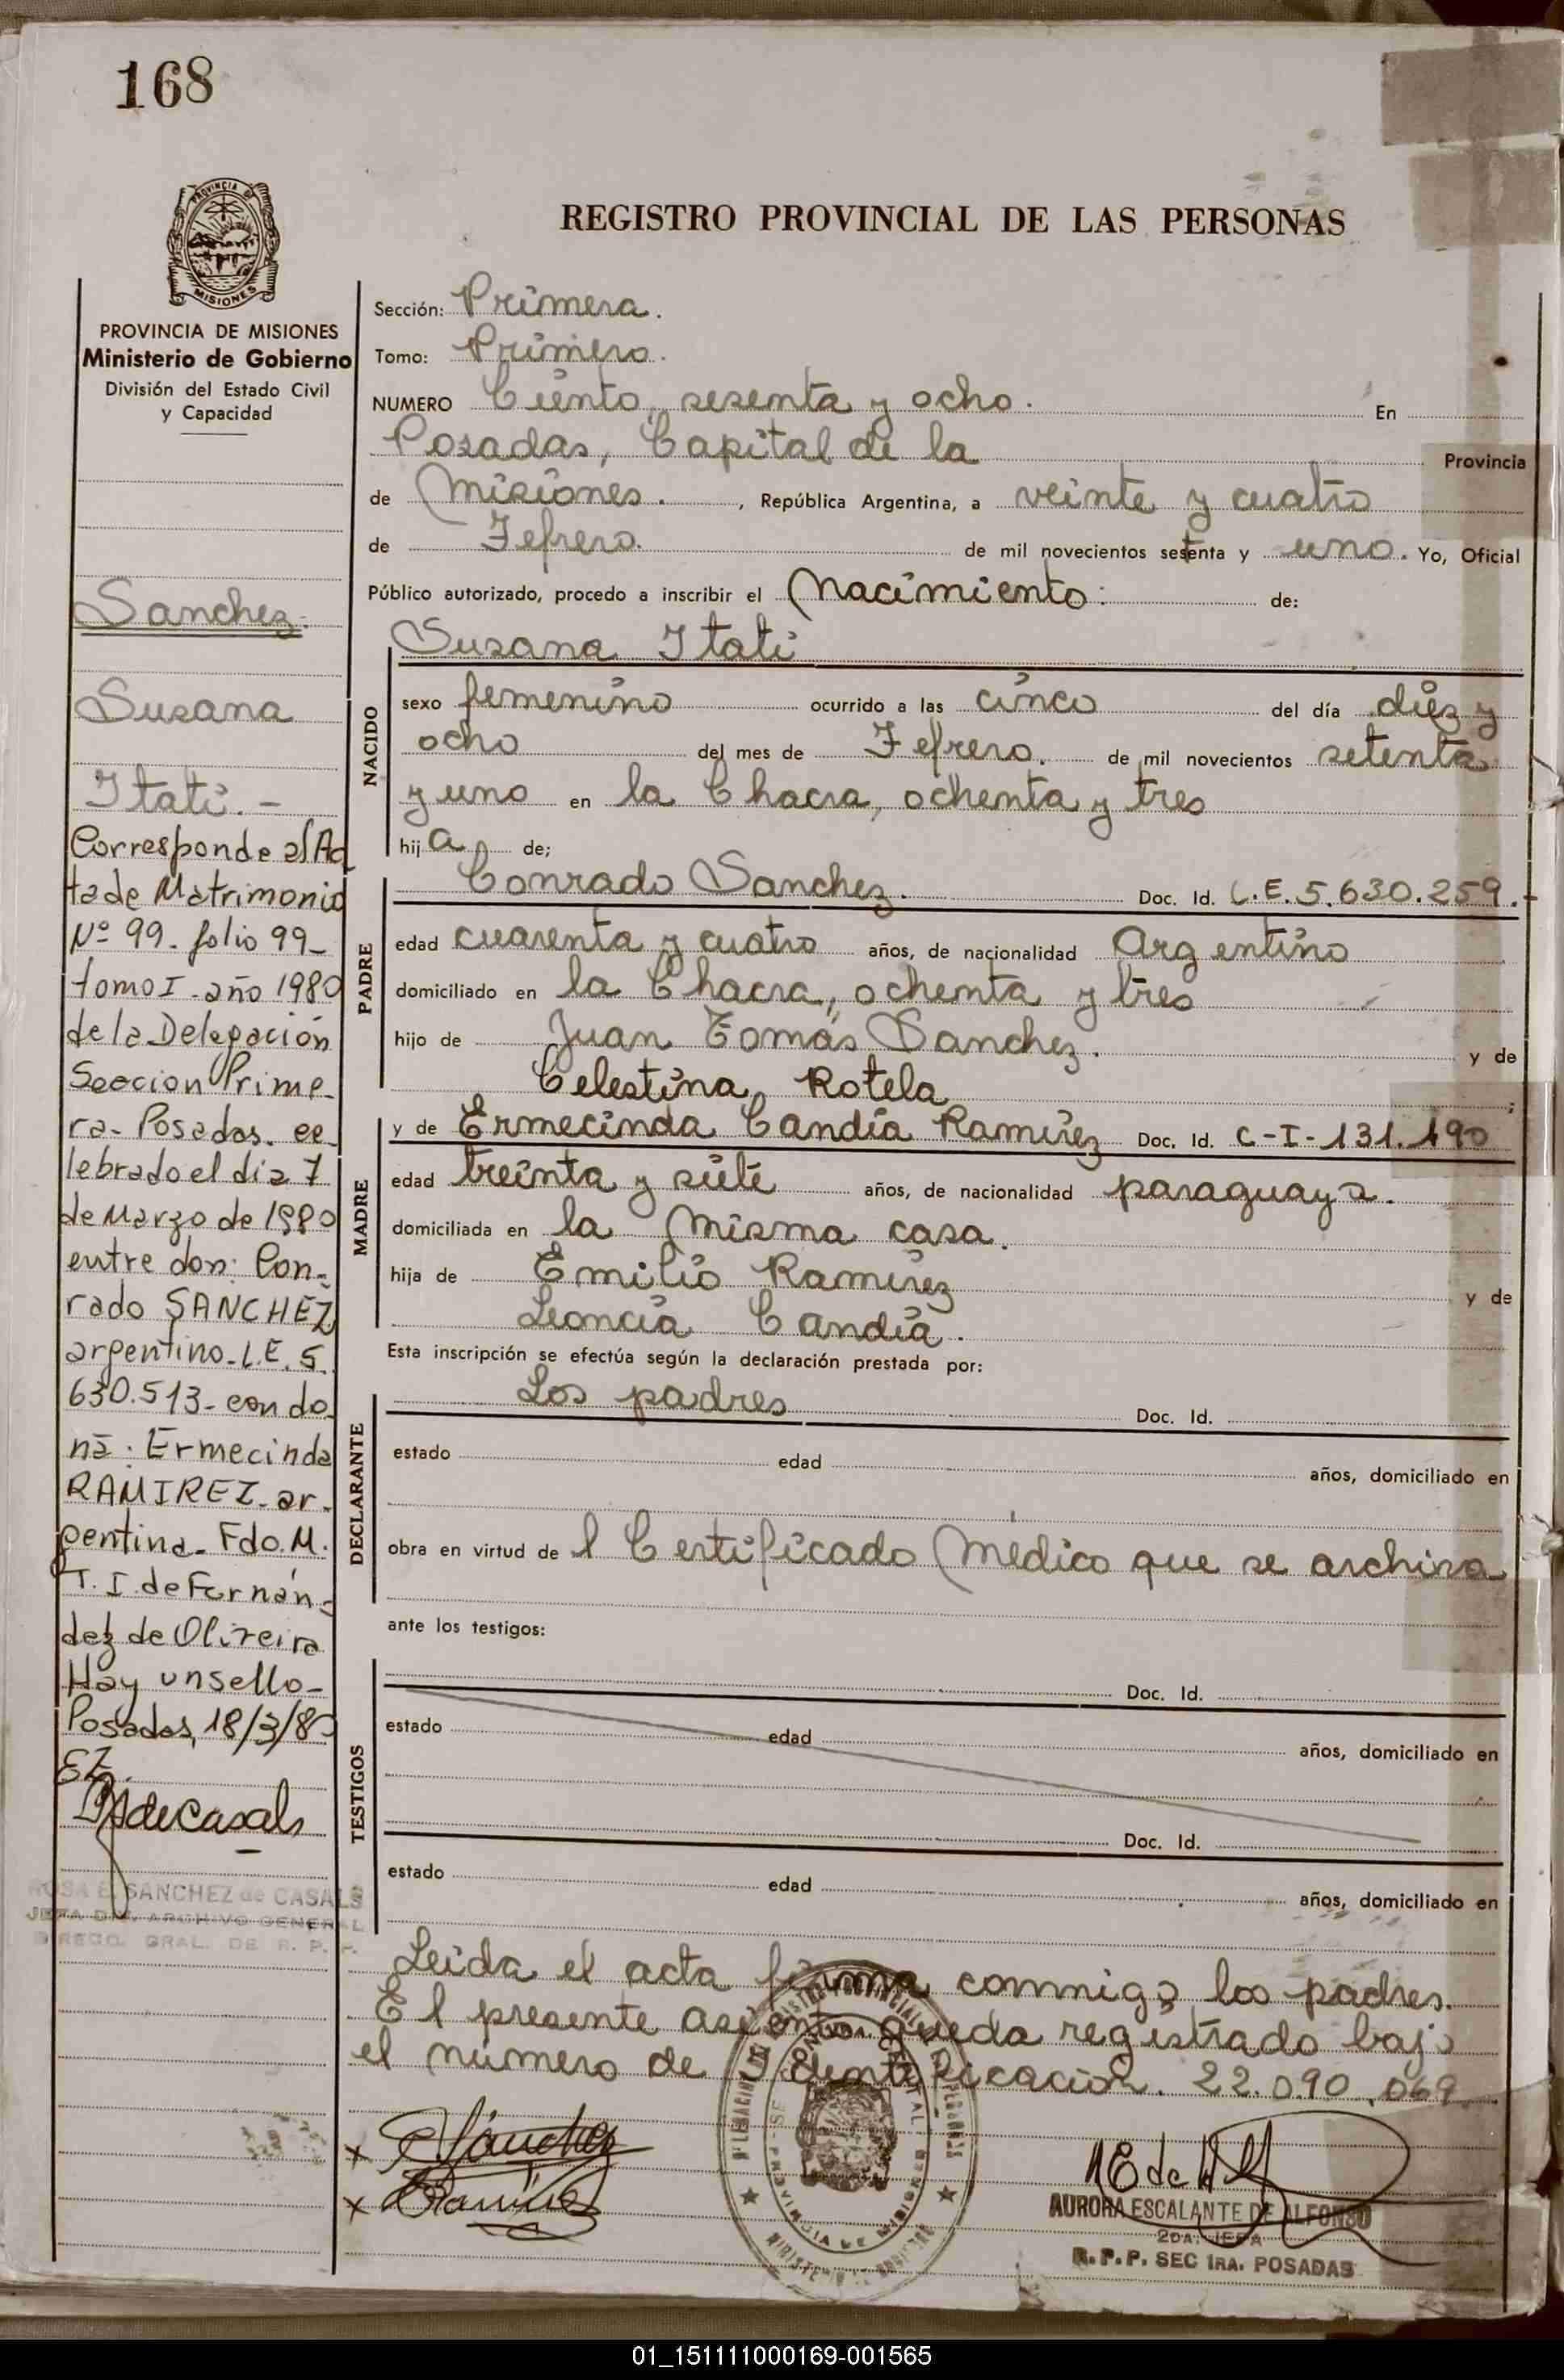 168
PROVINCIA DE
MISIONES
PROVINCIA DE MISIONES
Ministerio de Gobierno
División del Estado Civil
y Capacidad
Sanchez.
Susana
Itati. -
Corresponde al Ac
ta de Matrimonio
Nº 99 - folio 99 -
tomo I - año 1980
de la Delegación
Seccion Prime-
ra - Posadas. ce-
lebrado el dia 7
de Marzo de 1980
entre don: Con-
rado SANCHEZ
argentino - L.E. 5.
630.513 - con do
ña: Ermecinda
RAMIREZ - ar-
gentina - Fdo. M.
T. I. de Fernán-
dez de Oliveira
Hay un sello -
Posadas, 18/3/80
EZ.
de Casals
ROSA E. SANCHEZ de CASALS
JEFA DIV. ARCHIVO GENERAL
DIRECC. GRAL. DE R. P. P.
REGISTRO PROVINCIAL DE LAS PERSONAS
Sección: Primera.
Tomo: Primero.
NUMERO Ciento, sesenta y ocho. En
Posadas, Capital de la Provincia
de Misiones. , República Argentina, a veinte y cuatro
de Fefrero. de mil novecientos setenta y uno. Yo, Oficial
Público autorizado, procedo a inscribir el Nacimiento: de:
Susana Itati
NACIDO
sexo femenino ocurrido a las cinco del día diez y
ocho del mes de Fefrero. de mil novecientos setenta
y uno en la Chacra, ochenta y tres
hij a de;
PADRE
Conrado Sanchez. Doc. Id. L.E. 5.630.259.-
edad cuarenta y cuatro años, de nacionalidad Argentino
domiciliado en la Chacra, ochenta y tres
hijo de Juan Tomás Sanchez. y de
Celestina Rotela ;
MADRE
y de Ermecinda Candia Ramirez Doc. Id. C-I-131.190
edad treinta y siete años, de nacionalidad paraguaya.
domiciliada en la misma casa.
hija de Emilio Ramirez y de
Leoncia Candia.
Esta inscripción se efectúa según la declaración prestada por:
DECLARANTE
Los padres Doc. Id.
estado edad años, domiciliado en
obra en virtud de l Certificado Médico que se archiva
ante los testigos:
TESTIGOS
Doc. Id.
estado edad años, domiciliado en
Doc. Id.
estado edad años, domiciliado en
Leida el acta firma conmigo los padres.
El presente asiento queda registrado bajo
el número de Identificación. 22.090.069
x Sánchez
x Ramirez
AURORA ESCALANTE DE ALFONSO
2DA. JEFA
R. P. P. SEC 1RA. POSADAS
01_151111000169-001565